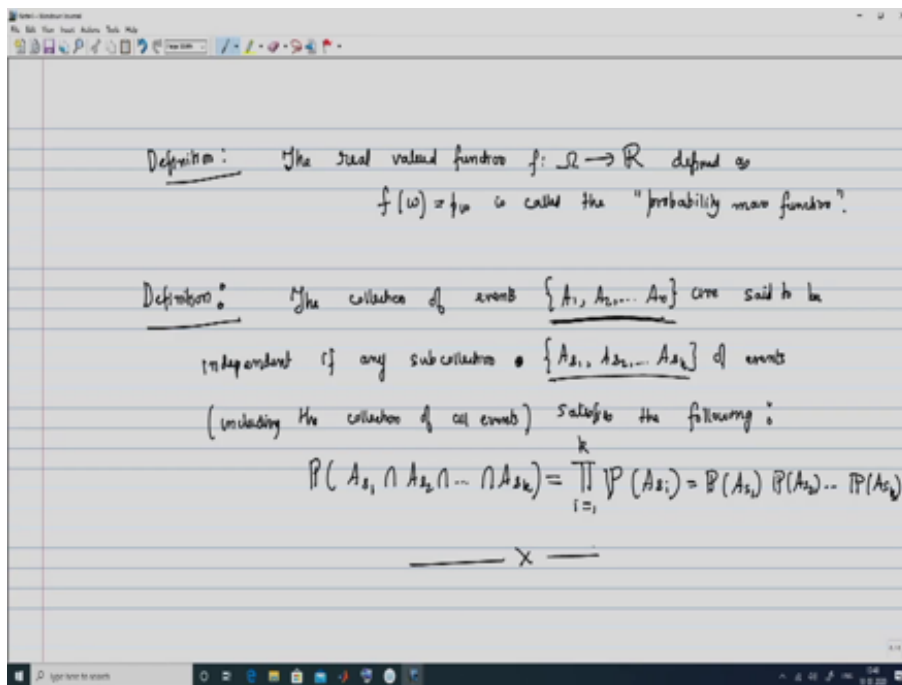 File Edit View Insert Actions Tools Help
Definition: The real valued function f: Ω → ℝ defined as
f(ω) = p_ω is called the "probability mass function".
Definition: The collection of events {A₁, A₂, ... Aₙ} are said to be
independent if any subcollection {A_{s₁}, A_{s₂}, ... A_{s_k}} of events
(including the collection of all events) satisfies the following:
ℙ(A_{s₁} ∩ A_{s₂} ∩ ... ∩ A_{s_k}) = ∏_{i=1}^{k} ℙ(A_{s_i}) = ℙ(A_{s₁}) ℙ(A_{s₂}) ... ℙ(A_{s_k})
——— X ———
Type here to search